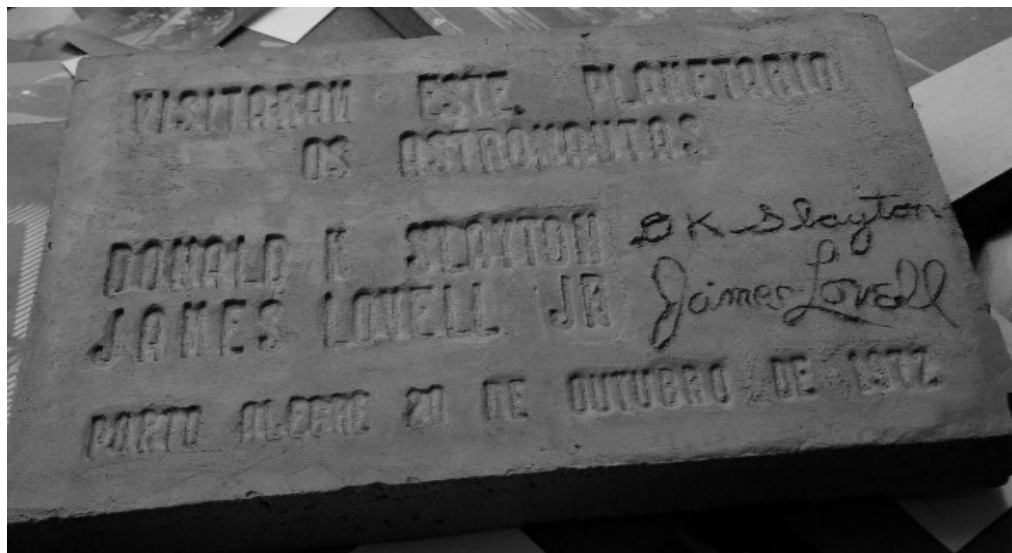 VISITARAM ESTE PLANETARIO
OS ASTRONAUTAS
DONALD K SLAYTON D K Slayton
JAMES LOVELL JR James Lovell
PORTO ALEGRE 20 DE OUTUBRO DE 1972